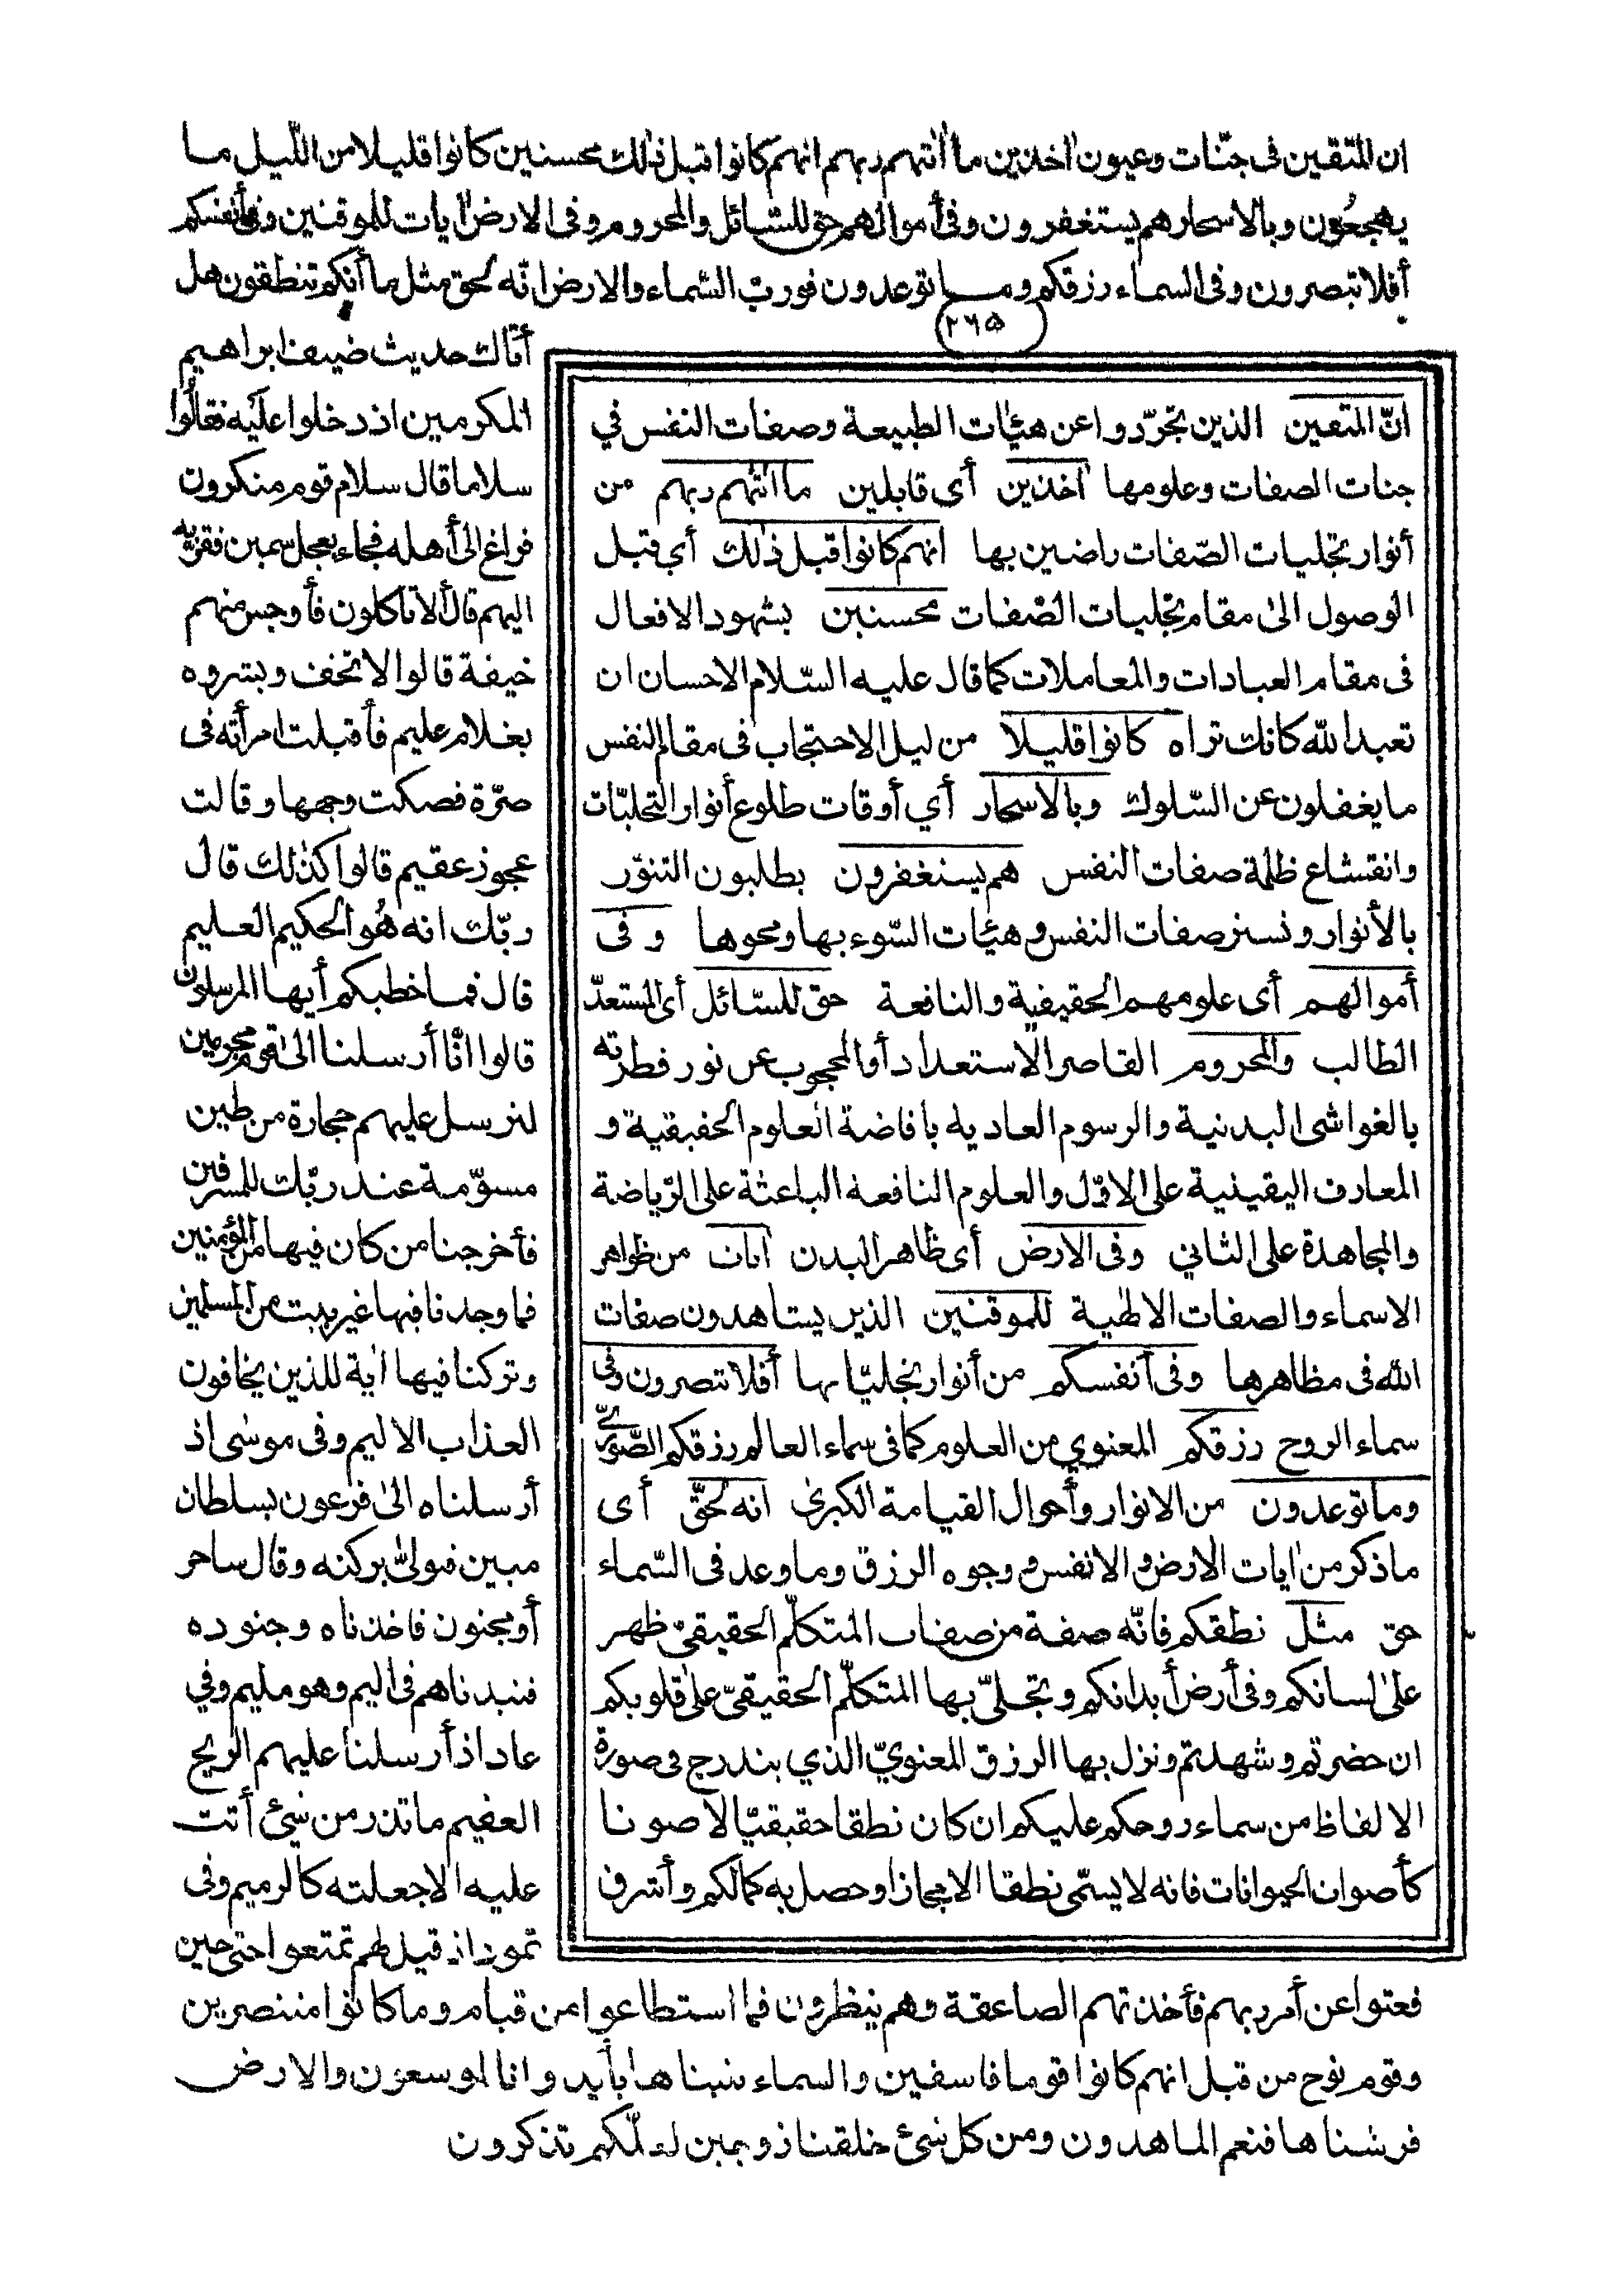 ان المتّقين فى جنّات وعيون اٰخذين ما اٰتٰهم ربهم انهم كانوا قبل ذٰلك محسنين كانوا قليلا من اللّيل ما
يهجعُون وبالاسحار هم يستغفرون وفى أموالهم حق للسّائل والمحروم وفى الارض اٰيات للموقنين وفى أنفسكم
أفلا تبصرون وفى السماء رزقكم وما توعدون فورب السّماء والارض انّه لحق مثل ما أنكم تنطقون هل
٢٦٥
أتاك حديث ضيف ابراهيم
المكرمين اذ دخلوا عليه فقالُوا
سلاما قال سلام قوم منكرون
فراغ الى أهله فجاء بعجل سمين فقرّبه
اليهم قال ألا تأكلون فأوجس منهم
خيفة قالوا لا تخف وبشروه
بغلام عليم فأقبلت امرأته فى
صرّة فصكت وجهها وقالت
عجوز عقيم قالوا كذٰلك قال
ربّك انه هُو الحكيم العليم
قال فما خطبكم أيها المرسلون
قالوا انّا أرسلنا الىٰ قوم مجرمين
لنرسل عليهم حجارة من طين
مسوّمة عند ربّك للمسرفين
فأخرجنا من كان فيها من المؤمنين
فما وجدنا فيها غير بيت من المسلمين
وتركنا فيها اٰية للذين يخافون
العذاب الاليم وفى موسٰى اذ
أرسلناه الىٰ فرعون بسلطان
مبين فتولىّٰ بركنه وقال ساحر
أو مجنون فاخذناه وجنوده
فنبذناهم فى اليم وهو مليم وفي
عاد اذ أرسلنا عليهم الريح
العقيم ما تذر من شئ أتت
عليه الا جعلته كالرميم وفى
ثمود اذ قيل لهم تمتعوا حتى حين
انّ المتقين الذين تجرّدوا عن هيٰات الطبيعة وصفات النفس في
جنات الصفات وعلومها اٰخذين أى قابلين ما اٰتٰهم ربهم من
أنوار تجليات الصّفات راضين بها انهم كانوا قبل ذٰلك أي قبل
الوصول الىٰ مقام تجليات الصّفات محسنين بشهود الافعال
فى مقام العبادات والمعاملات كما قال عليه السّلام الاحسان ان
تعبد الله كانك تراه كانوا قليلا من ليل الاحتجاب فى مقام النفس
ما يغفلون عن السّلوك وبالاسحار أي أوقات طلوع أنوار التجليّات
وانقشاع ظلمة صفات النفس هم يستغفرون يطلبون التنوّر
بالأنوار وتستر صفات النفس وهيئات السّوء بها ومحوها وفى
أموالهم أى علومهم الحقيقية والنافعة حق للسّائل أى المستعدّ
الطالب والمحروم القاصر الاستعداد أو المحجوب عن نور فطرته
بالغواشى البدنية والرسوم العاديه بافاضة العلوم الحقيقية و
المعارف اليقينية على الاوّل والعلوم النافعة الباعثة على الرّياضة
والمجاهدة على الثاني وفى الارض أى ظاهر البدن اٰيات من ظواهر
الاسماء والصفات الالٰهية للموقنين الذين يشاهدون صفات
الله فى مظاهرها وفى أنفسكم من أنوار تجليّاتها أفلا تبصرون وفى
سماء الروح رزقكم المعنوي من العلوم كما فى سماء العالم رزقكم الصّوريّ
وما توعدون من الانوار وأحوال القيامة الكبرىٰ انه لحَقّ أى
ما ذكر من اٰيات الارض والانفس ووجوه الرزق وما وعد فى السّماء
حق مثل نطقكم فانّه صفة من صفات المتكلّم الحقيقىّ ظهر
علىٰ لسانكم وفى أرض أبدانكم وتجلىّ بها المتكلّم الحقيقىّ علىٰ قلوبكم
ان حضرتم وشهدتم ونزل بها الرزق المعنويّ الذي يندرج فى صورة
الالفاظ من سماء روحكم عليكم ان كان نطقا حقيقيّا لا صوتا
كأصوات الحيوانات فانه لا يسمّى نطقا الا مجازا وحصل به كمالكم وأشرف
فعتوا عن أمر ربهم فأخذتهم الصاعقة وهم ينظرون فما استطاعوا من قيام وما كانوا منتصرين
وقوم نوح من قبل انهم كانوا قوما فاسقين والسماء بنيناها بأيد وانا لموسعون والارض
فرشناها فنعم الماهدون ومن كل شئ خلقنا زوجين لعلّكم تذكرون